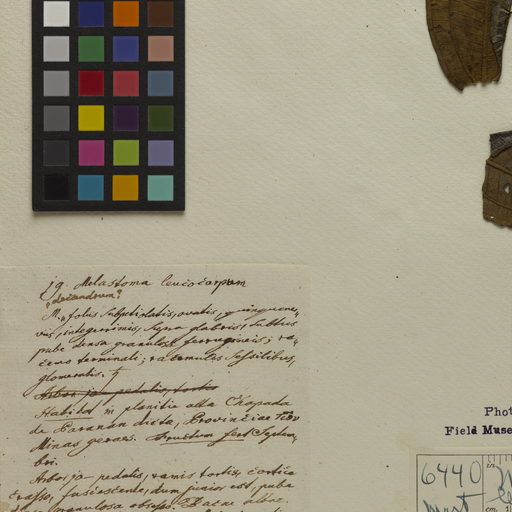 19. Melastoma leucocarpum
"decandrum?
M. foliis subpetiolatis, ovatis, quinquener-
viis, integerrimis, supra glabris, subtus
pube densa granulosa ferrugineis; ra-
cemo terminali; racemulis sessilibus,
glomeratis. ♄
Arbor 10- pedalis, tortis
Habitat in planitie alta Chapada
de Paranan dicta, Provinciae
Minas geraes. Fructum fert Septem-
bri.
Arbor 10- pedalis, ramis tortis, cortice
crasso, fuscescente, dum junior est, pube
granulosa obsesso.
Phot
Field Muse
6440